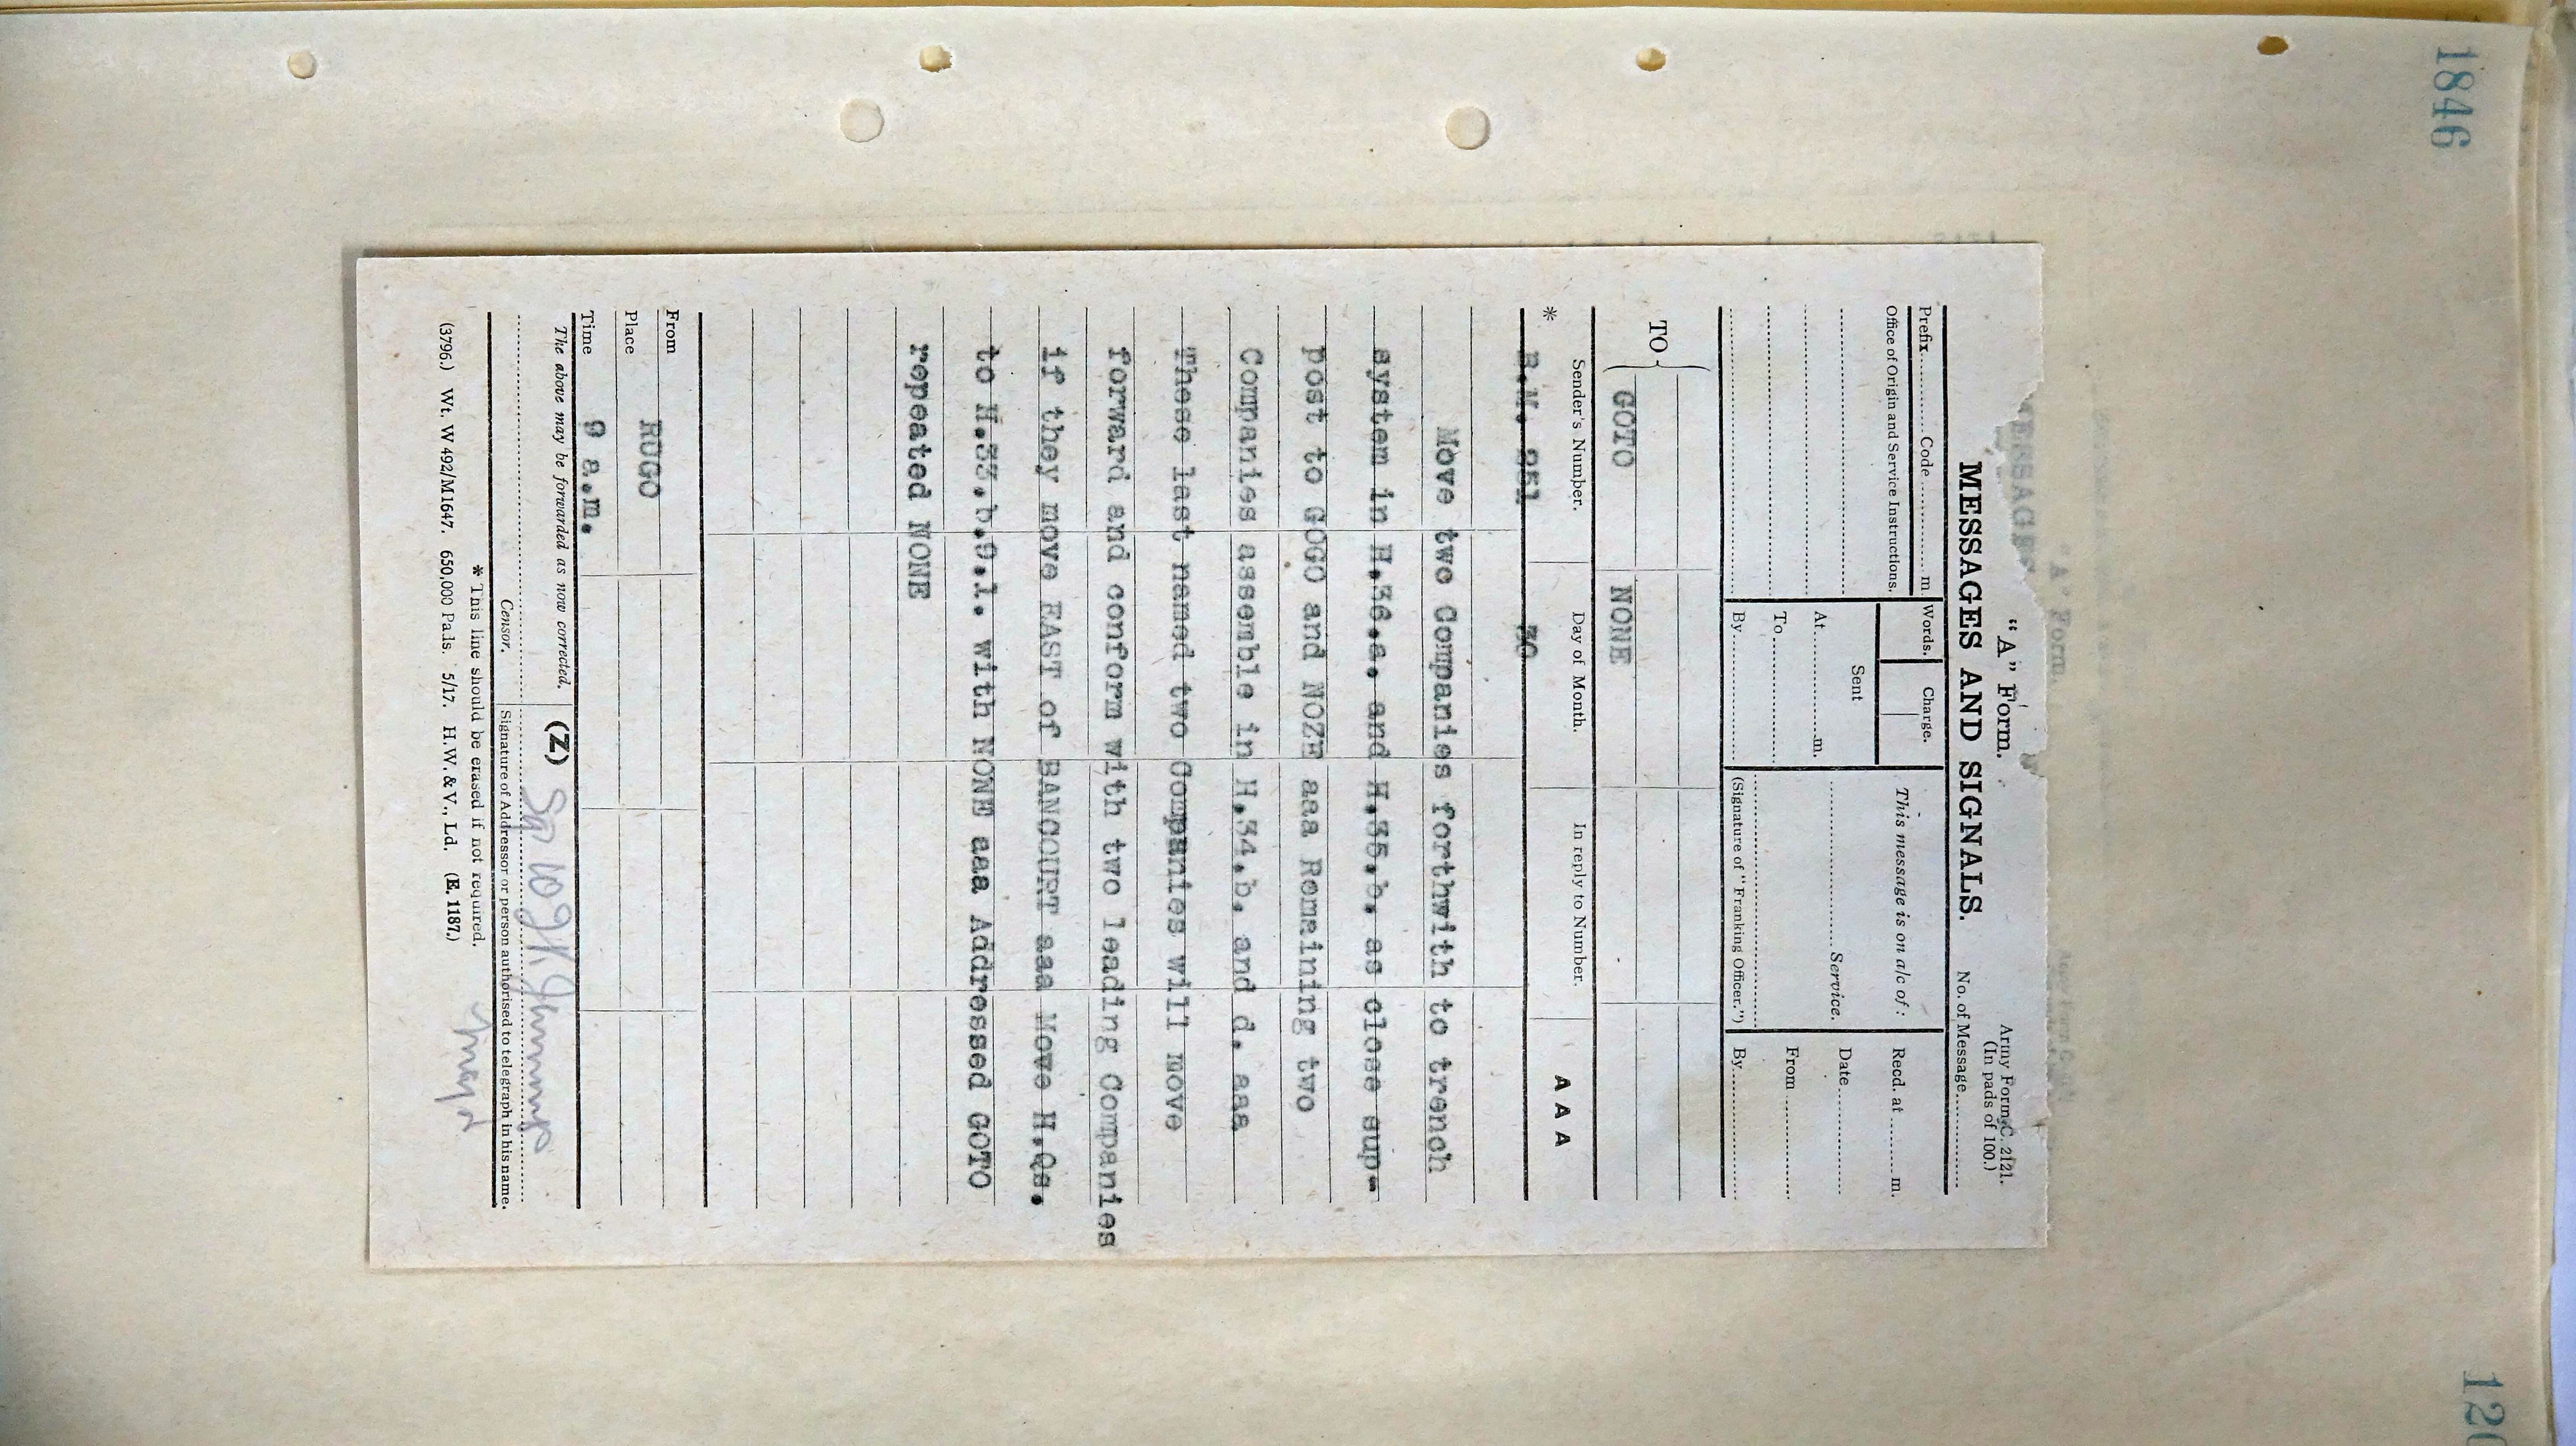 1846
120
"A" Form.
Army Form C. 2121.
(In pads of 100.)
MESSAGES AND SIGNALS.
No. of Message..........
Prefix.......... Code.......... m
Words.
Charge.
This message is on a/c of :
Recd. at .......... m.
Office of Origin and Service Instructions.
Sent
Date..........
At..........m.
..........Service.
From..........
To..........
By..........
(Signature of "Franking Officer.")
By..........
TO {
GOTO NONE
* Sender's Number. Day of Month. In reply to Number. A A A
B.M. 851 30
Move two Companies forthwith to trench
system in H.36.a. and H.35.b. as close sup-
post to GOGO and NOZE aaa Remaining two
Companies assemble in H.34.b. and d. aaa
These last named two Companies will move
forward and conform with two leading Companies
if they move EAST of BANCOURT aaa Move H.Qs.
to H.33.b.9.1. with NONE aaa Addressed GOTO
repeated NONE
From RUGO
Place
Time 9 a.m.
The above may be forwarded as now corrected. (Z)
Censor. Signature of Addressor or person authorised to telegraph in his name.
* This line should be erased if not required.
(3796.) Wt. W 492/M1647. 650,000 Pads. 5/17. H.W. & V., Ld. (E. 1187.)